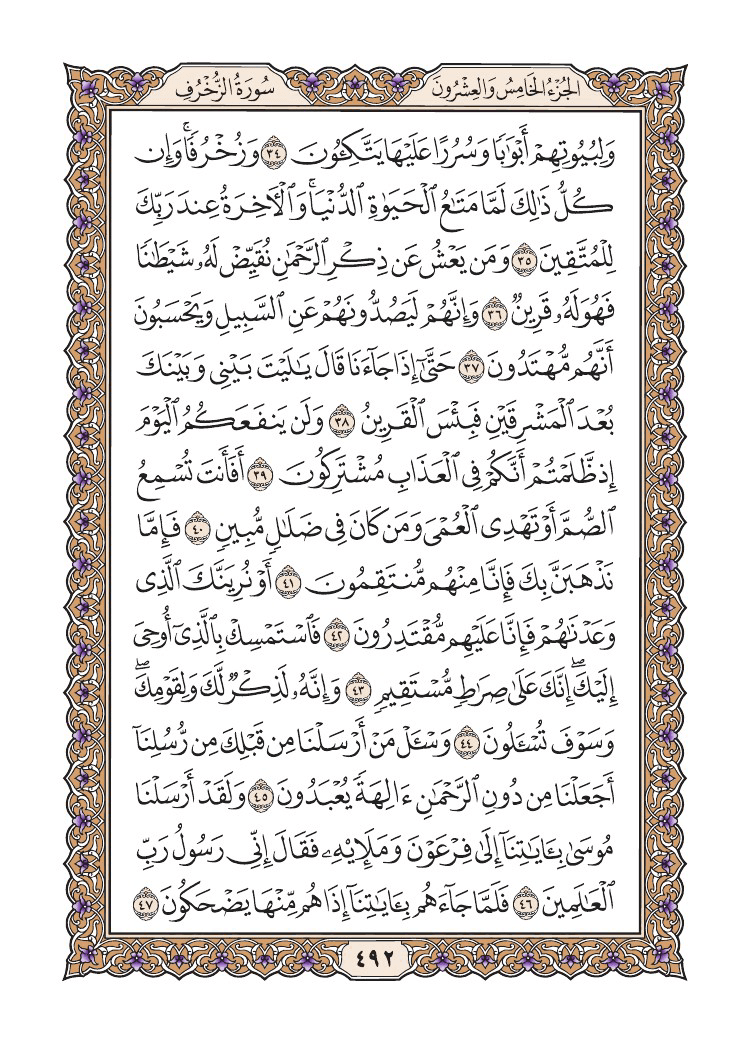 الجُزْءُ الخَامِسُ وَالعِشْرُونَ
سُورَةُ الزُّخْرُفِ
وَلِبُيُوتِهِمْ أَبْوَٰبًا وَسُرُرًا عَلَيْهَا يَتَّكِـُٔونَ ٣٤ وَزُخْرُفًاۚ وَإِن
كُلُّ ذَٰلِكَ لَمَّا مَتَٰعُ ٱلْحَيَوٰةِ ٱلدُّنْيَاۚ وَٱلْءَاخِرَةُ عِندَ رَبِّكَ
لِلْمُتَّقِينَ ٣٥ وَمَن يَعْشُ عَن ذِكْرِ ٱلرَّحْمَٰنِ نُقَيِّضْ لَهُۥ شَيْطَٰنًا
فَهُوَ لَهُۥ قَرِينٌ ٣٦ وَإِنَّهُمْ لَيَصُدُّونَهُمْ عَنِ ٱلسَّبِيلِ وَيَحْسَبُونَ
أَنَّهُم مُّهْتَدُونَ ٣٧ حَتَّىٰٓ إِذَا جَآءَنَا قَالَ يَٰلَيْتَ بَيْنِى وَبَيْنَكَ
بُعْدَ ٱلْمَشْرِقَيْنِ فَبِئْسَ ٱلْقَرِينُ ٣٨ وَلَن يَنفَعَكُمُ ٱلْيَوْمَ
إِذ ظَّلَمْتُمْ أَنَّكُمْ فِى ٱلْعَذَابِ مُشْتَرِكُونَ ٣٩ أَفَأَنتَ تُسْمِعُ
ٱلصُّمَّ أَوْ تَهْدِى ٱلْعُمْىَ وَمَن كَانَ فِى ضَلَٰلٍ مُّبِينٍ ٤٠ فَإِمَّا
نَذْهَبَنَّ بِكَ فَإِنَّا مِنْهُم مُّنتَقِمُونَ ٤١ أَوْ نُرِيَنَّكَ ٱلَّذِى
وَعَدْنَٰهُمْ فَإِنَّا عَلَيْهِم مُّقْتَدِرُونَ ٤٢ فَٱسْتَمْسِكْ بِٱلَّذِىٓ أُوحِىَ
إِلَيْكَۖ إِنَّكَ عَلَىٰ صِرَٰطٍ مُّسْتَقِيمٍ ٤٣ وَإِنَّهُۥ لَذِكْرٌ لَّكَ وَلِقَوْمِكَۖ
وَسَوْفَ تُسْـَٔلُونَ ٤٤ وَسْـَٔلْ مَنْ أَرْسَلْنَا مِن قَبْلِكَ مِن رُّسُلِنَآ
أَجَعَلْنَا مِن دُونِ ٱلرَّحْمَٰنِ ءَالِهَةً يُعْبَدُونَ ٤٥ وَلَقَدْ أَرْسَلْنَا
مُوسَىٰ بِـَٔايَٰتِنَآ إِلَىٰ فِرْعَوْنَ وَمَلَإِي۟هِۦ فَقَالَ إِنِّى رَسُولُ رَبِّ
ٱلْعَٰلَمِينَ ٤٦ فَلَمَّا جَآءَهُم بِـَٔايَٰتِنَآ إِذَا هُم مِّنْهَا يَضْحَكُونَ ٤٧
٤٩٢